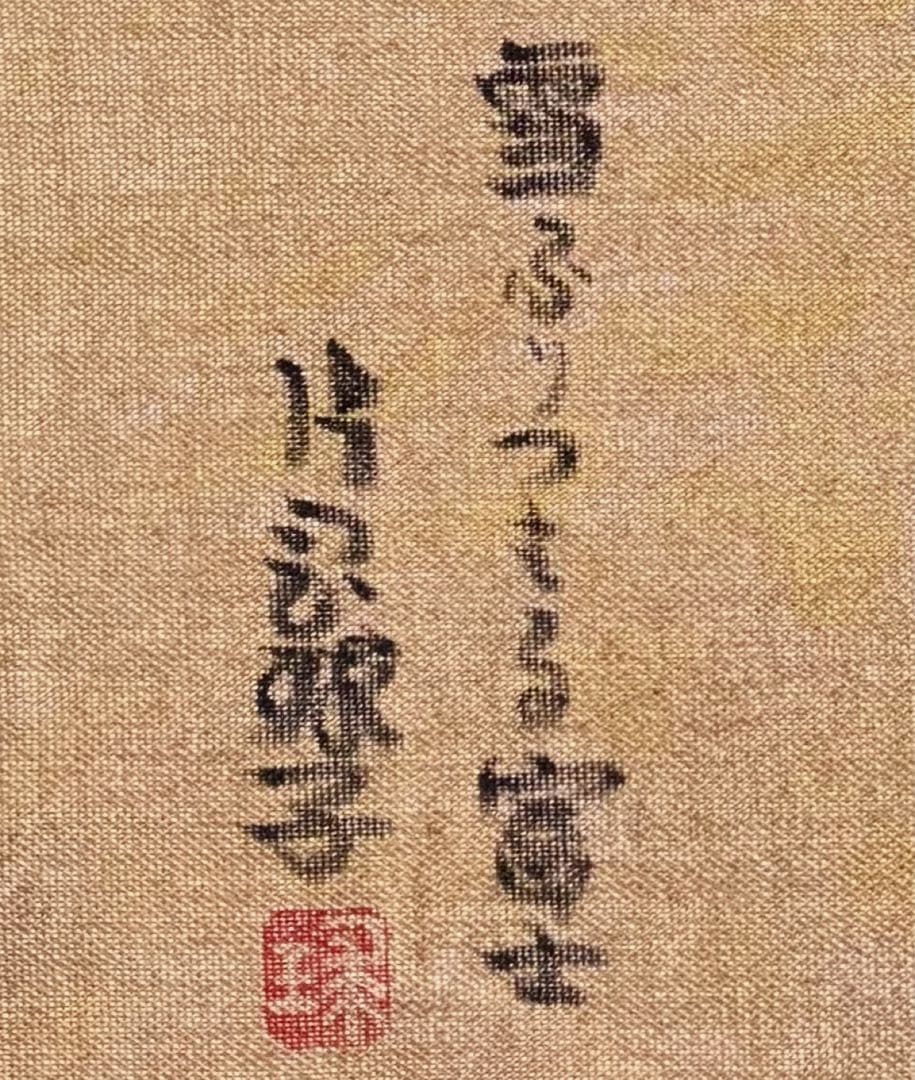 雪ふりつもる富士
片岡球子
球